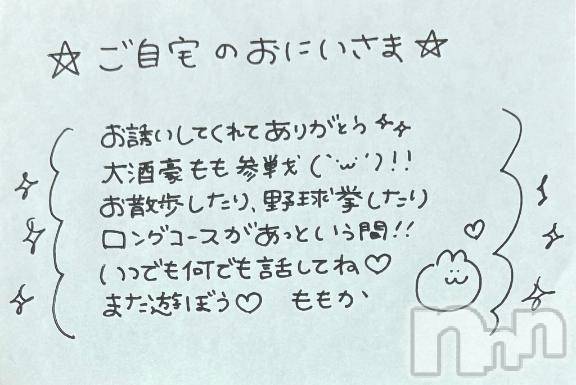 ☆ご自宅のおにいさま☆
お誘いしてくれてありがとう
大酒豪もも参戦(`･ω･´)!!
お散歩したり、野球拳したり
ロングコースがあっという間!!
いつでも何でも話してね♡
また遊ぼう♡ ももか